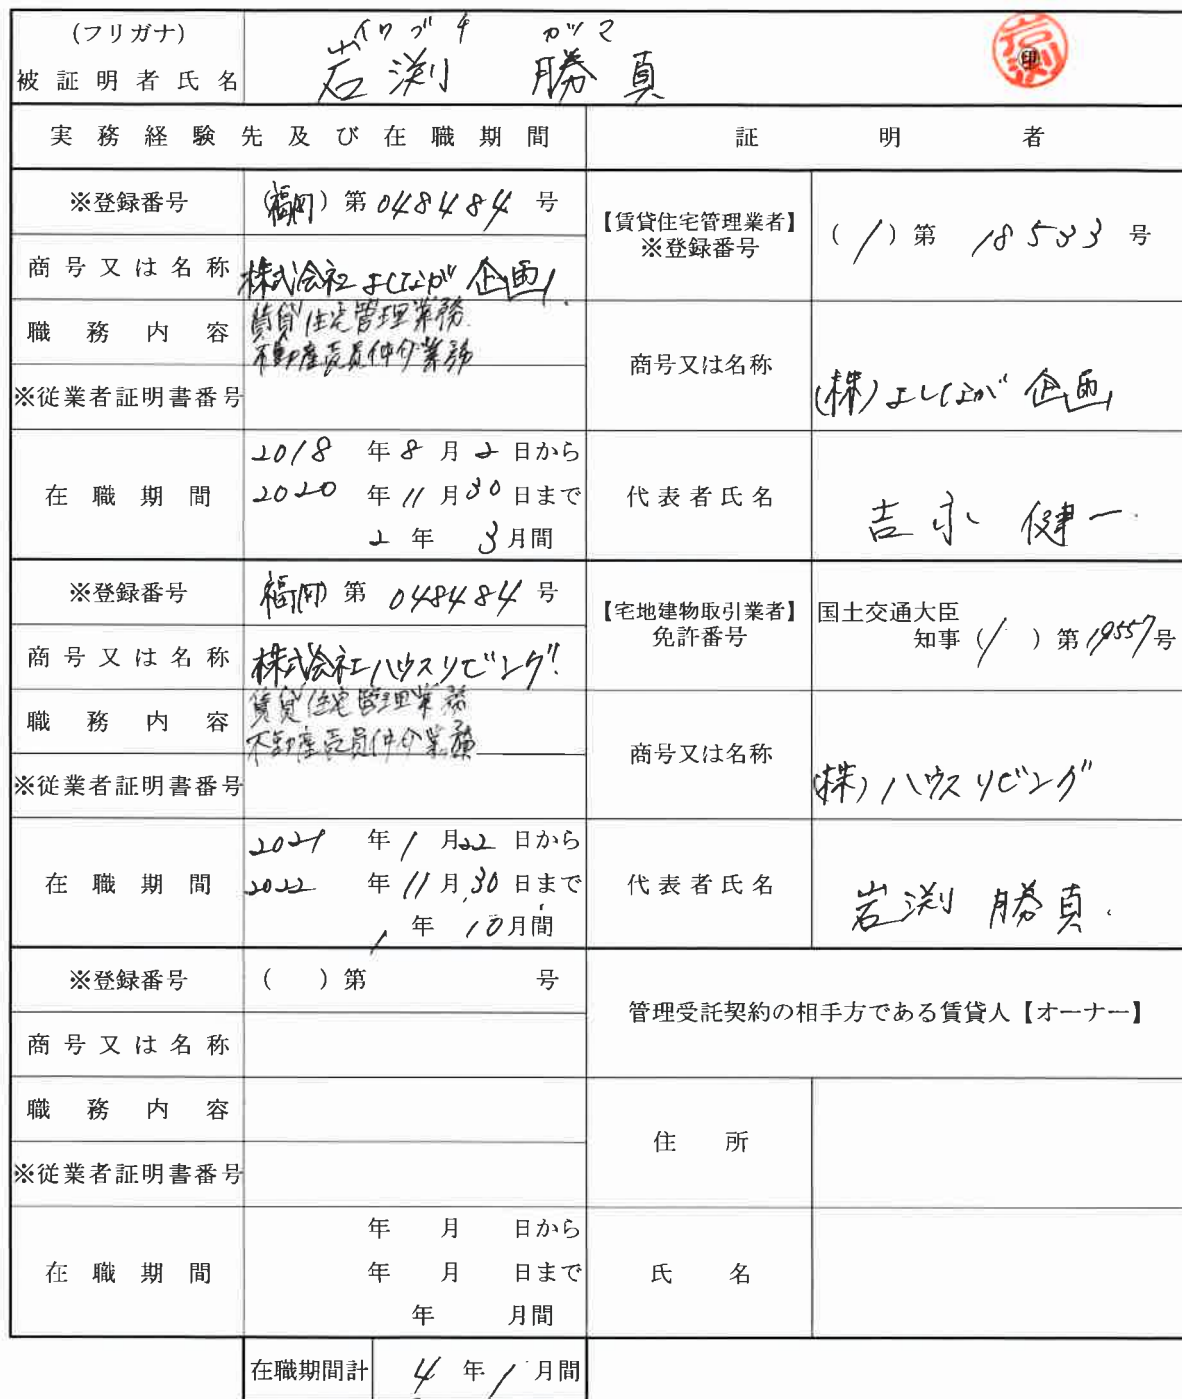 (フリガナ) イワブチ カツマ
被証明者氏名 岩渕 勝真 ㊞
実務経験先及び在職期間 証明者
※登録番号 (福岡) 第 048484 号
【賃貸住宅管理業者】
※登録番号 (1) 第 18533 号
商号又は名称 株式会社よしなが企画
職務内容 賃貸住宅管理業務
不動産売買仲介業務
商号又は名称 (株)よしなが企画
※従業者証明書番号
在職期間 2018 年 8 月 2 日から
2020 年 11 月 30 日まで
2 年 3 月間
代表者氏名 吉永 健一
※登録番号 福岡 第 048484 号
【宅地建物取引業者】
免許番号
国土交通大臣
知事 (1) 第 19557 号
商号又は名称 株式会社ハウスリビング
職務内容 賃貸住宅管理業務
不動産売買仲介業務
商号又は名称 (株)ハウスリビング
※従業者証明書番号
在職期間 2021 年 1 月 22 日から
2022 年 11 月 30 日まで
1 年 10 月間
代表者氏名 岩渕 勝真
※登録番号 ( ) 第 号
管理受託契約の相手方である賃貸人【オーナー】
商号又は名称
職務内容
住所
※従業者証明書番号
在職期間 年 月 日から
年 月 日まで
年 月間
氏名
在職期間計 4 年 1 月間